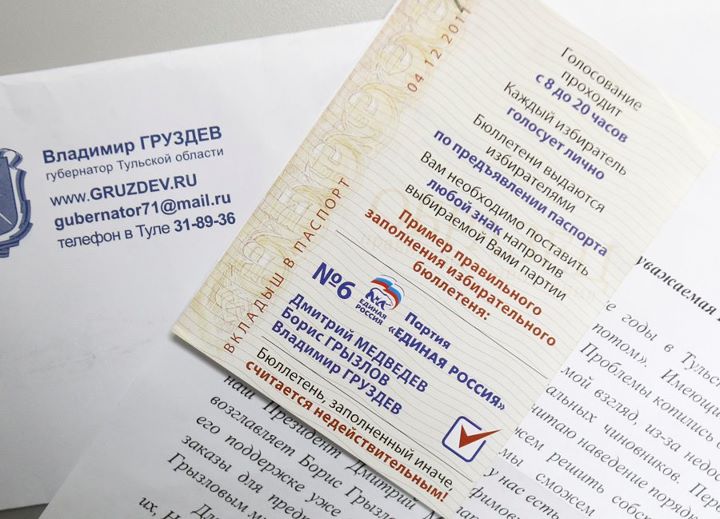 Владимир ГРУЗДЕВ
губернатор Тульской области
www.GRUZDEV.RU
gubernator71@mail.ru
телефон в Туле 31-89-36
ВКЛАДЫШ В ПАСПОРТ
04.12.2011
Голосование
проходит
с 8 до 20 часов
Каждый избиратель
голосует лично
Бюллетени выдаются
избирателями
по предъявлении паспорта
Вам необходимо поставить
любой знак напротив
выбираемой Вами партии
Пример правильного
заполнения избирательного
бюллетеня:
№6
ЕДИНАЯ
РОССИЯ
Партия
«ЕДИНАЯ РОССИЯ»
Дмитрий МЕДВЕДЕВ
Борис ГРЫЗЛОВ
Владимир ГРУЗДЕВ
Бюллетень, заполненный иначе,
считается недействительным!
уважаемая
е годы в Тульс
потом». Имеющи
Проблемы копились
мой взгляд, из-за недос
альных чиновников. Пер
читаю наведение порядк
жем решить собс
мы, сможем
у нас есть
наш Президент Дмитрий М
возглавляет Борис Грызл
его поддержке уже
заказы для предп
Грызловым м
их, Н